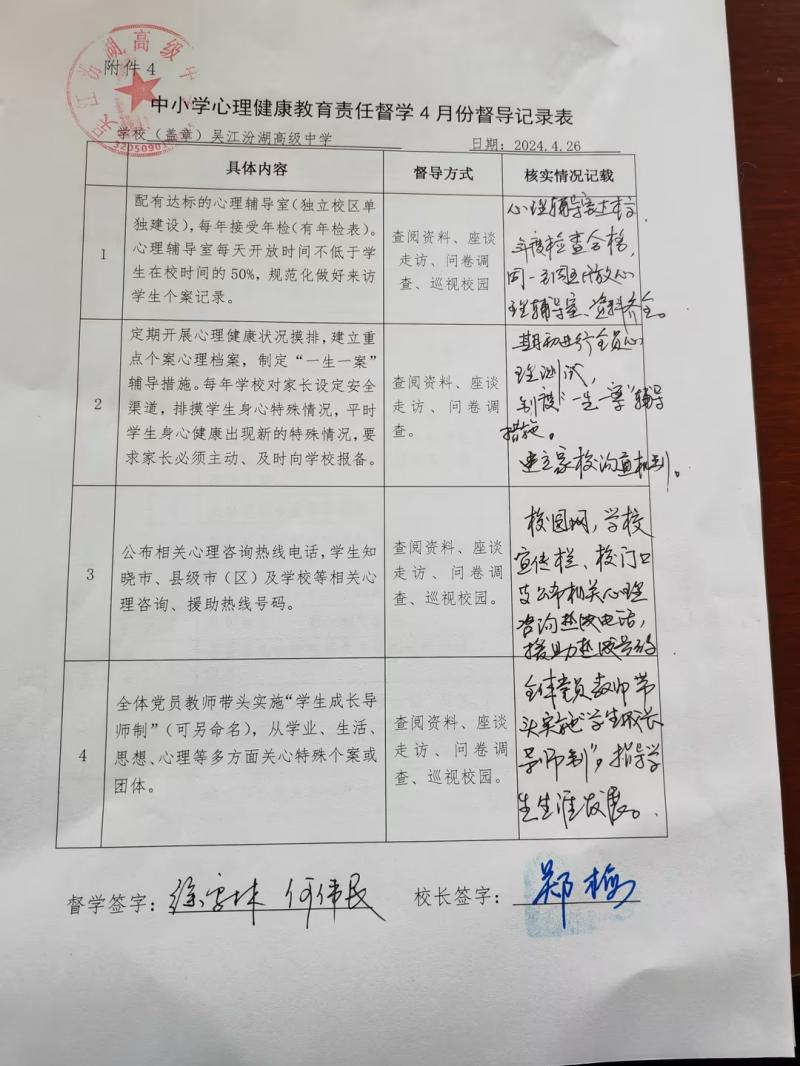 附件4
吴江汾湖高级中学
3205090
中小学心理健康教育责任督学4月份督导记录表
学校（盖章）吴江汾湖高级中学 日期：2024.4.26
具体内容 督导方式 核实情况记载
1
配有达标的心理辅导室(独立校区单
独建设)，每年接受年检(有年检表)。
心理辅导室每天开放时间不低于学
生在校时间的50%，规范化做好来访
学生个案记录。
查阅资料、座谈
走访、问卷调
查、巡视校园
心理辅导室达标，
年度检查合格，
周一到周五开放心
理辅导室、资料齐全。
2
定期开展心理健康状况摸排，建立重
点个案心理档案，制定“一生一案”
辅导措施。每年学校对家长设定安全
渠道，排摸学生身心特殊情况，平时
学生身心健康出现新的特殊情况，要
求家长必须主动、及时向学校报备。
查阅资料、座谈
走访、问卷调
查。
期初进行全员心
理测试，
制定“一生一案”辅导
措施。
建立家校沟通机制。
3
公布相关心理咨询热线电话，学生知
晓市、县级市（区）及学校等相关心
理咨询、援助热线号码。
查阅资料、座谈
走访、问卷调
查、巡视校园。
校园网，学校
宣传栏、校门口
公布相关心理
咨询热线电话，
援助热线号码
4
全体党员教师带头实施“学生成长导
师制”（可另命名），从学业、生活、
思想、心理等多方面关心特殊个案或
团体。
查阅资料、座谈
走访、问卷调
查、巡视校园。
全体党员教师带
头实施“学生成长
导师制”，指导学
生生涯发展。
督学签字： 何伟民 校长签字：郑梅